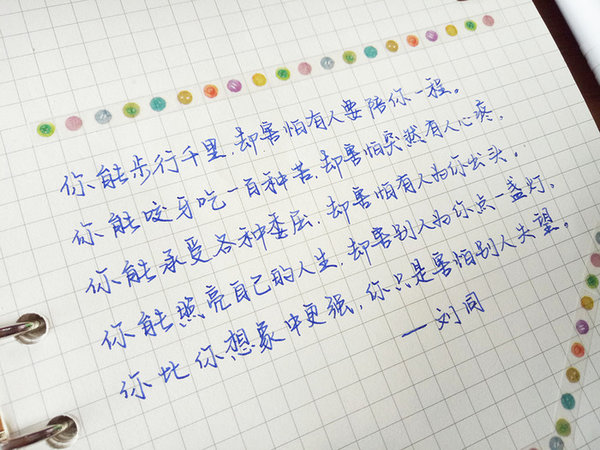 你能步行千里，却害怕有人要陪你一程。
你能咬牙吃一百种苦，却害怕突然有人心疼，
你能承受各种委屈，却害怕有人为你出头。
你能照亮自己的人生，却害别人为你点一盏灯，
你比你想象中更强，你只是害怕别人失望。
—刘同